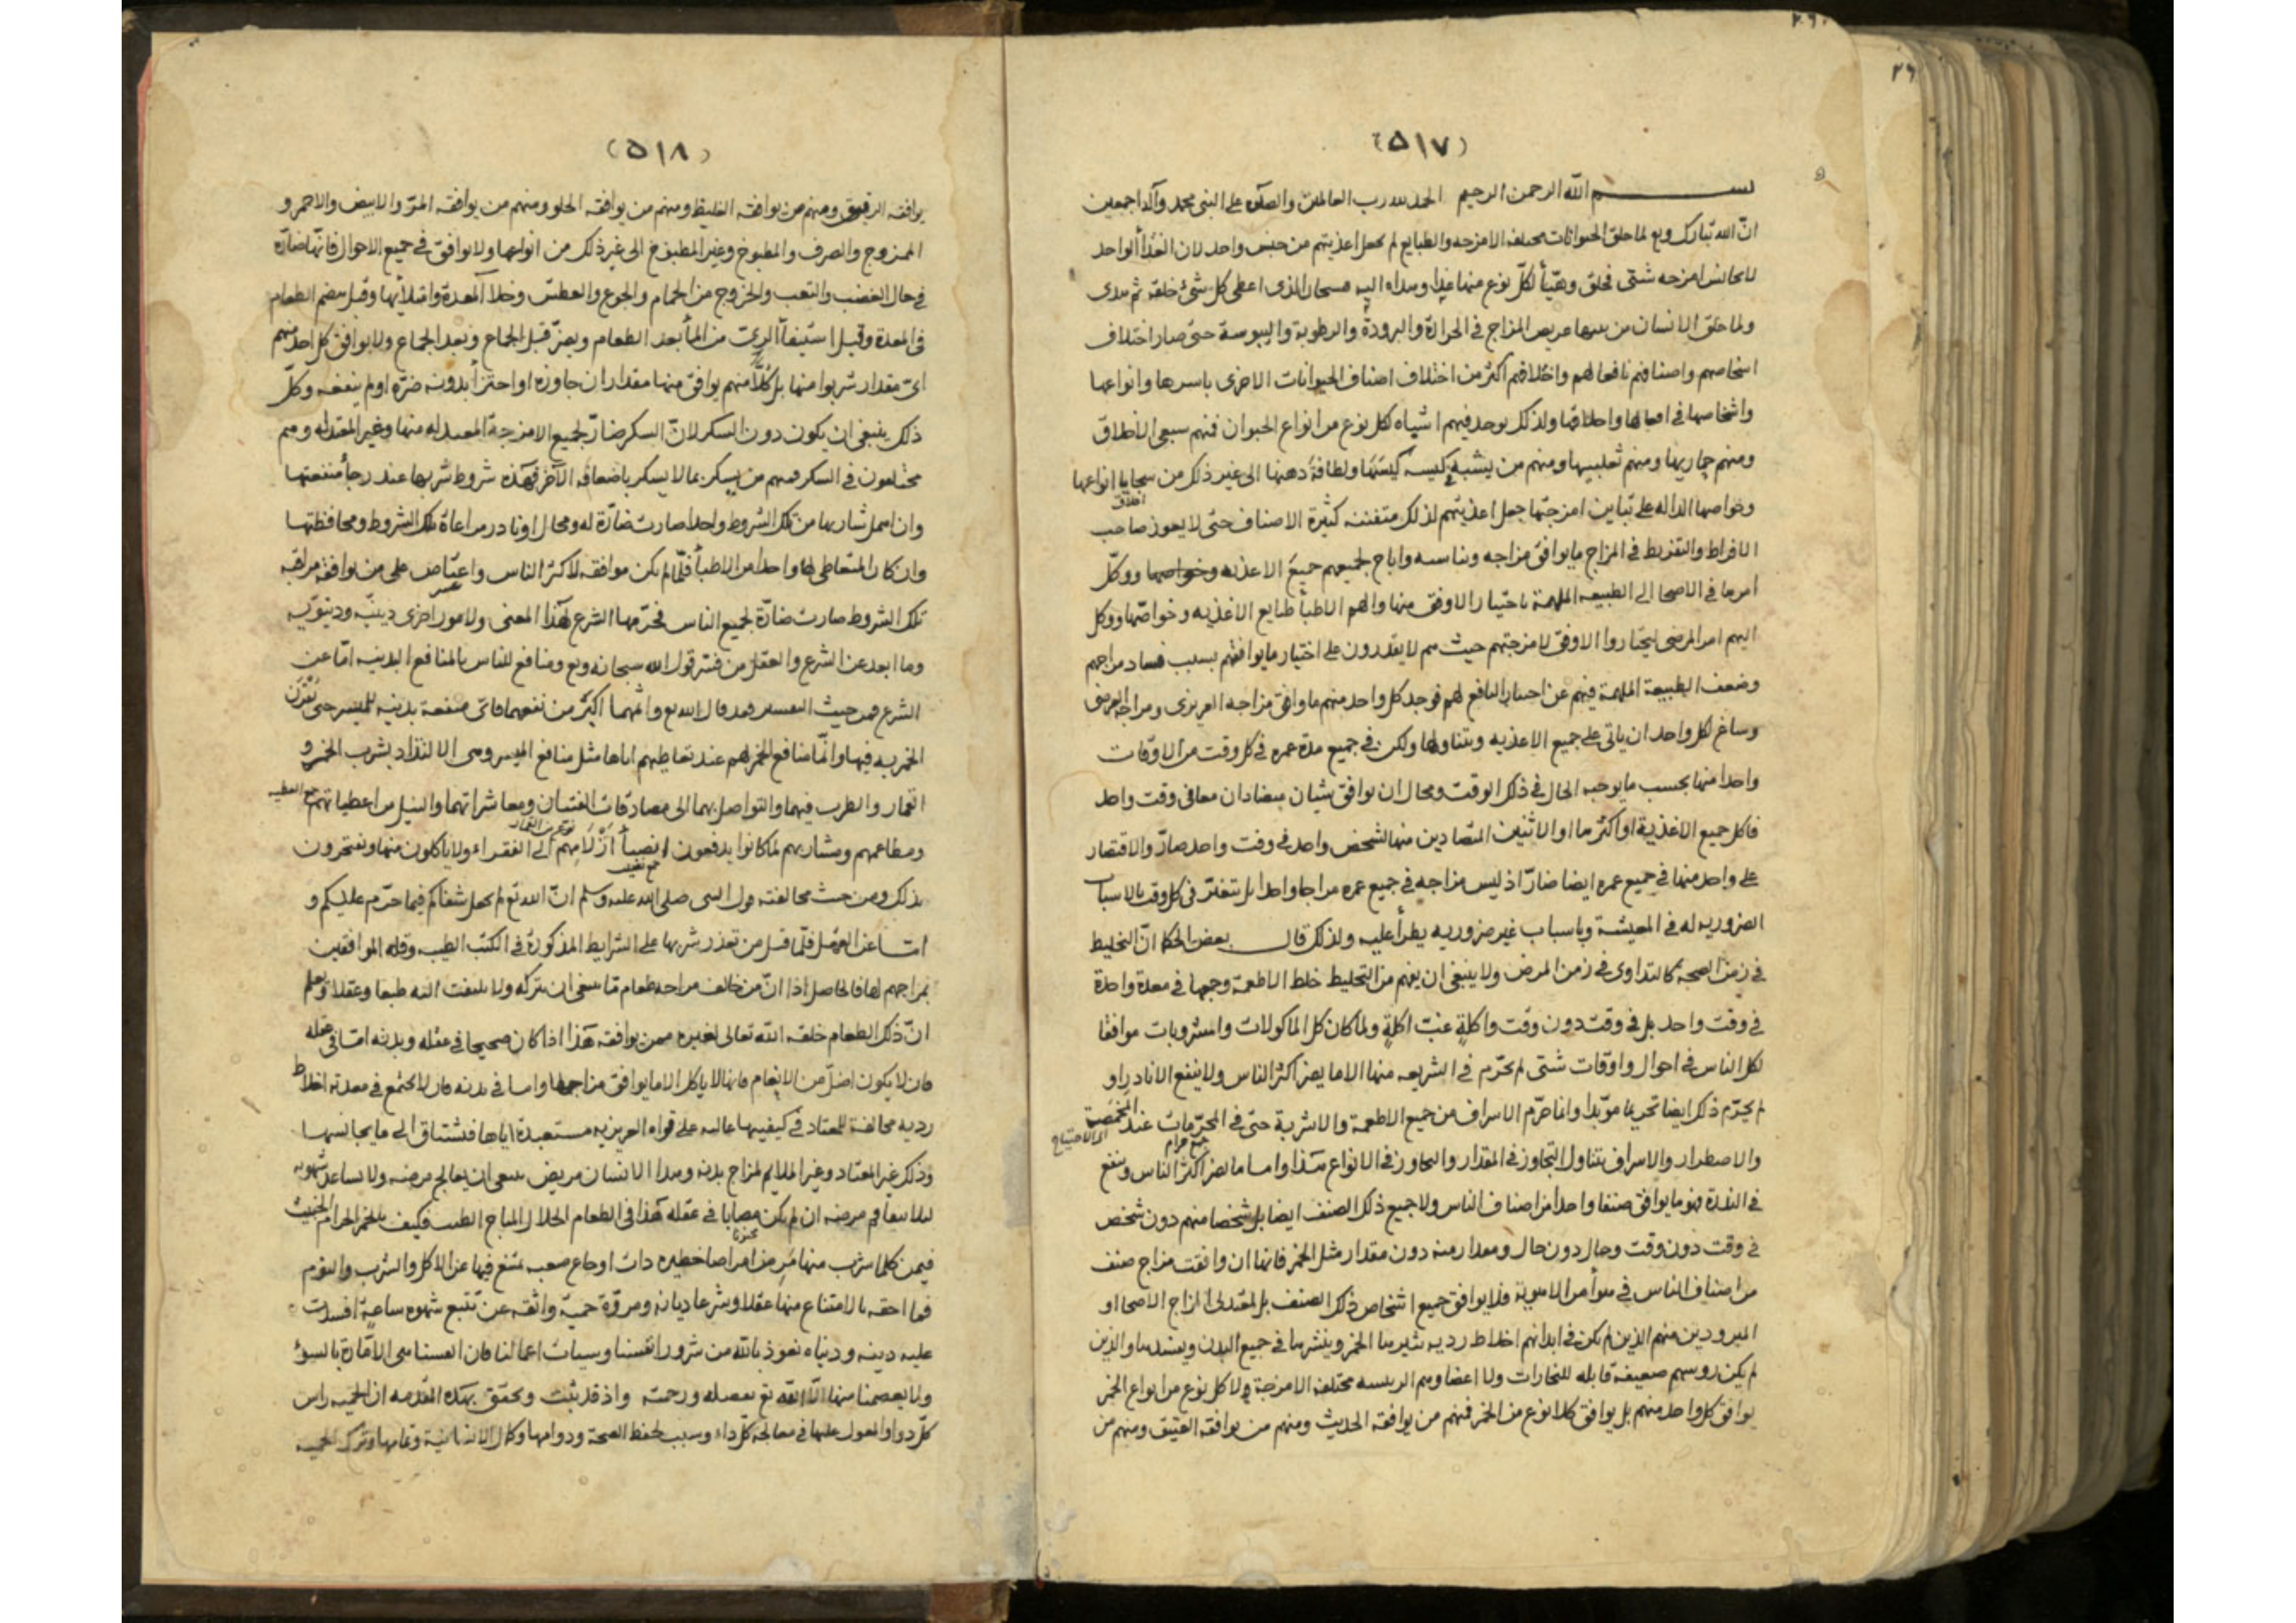 (٥١٧)
بسم الله الرحمن الرحيم الحمد لله رب العالمين والصلوة على النبى محمد وآله اجمعين
انّ الله تبارك وتع لما خلق الحيوانات مختلفة الامزجه والطبايع لم يجعل اغذيتهم من جنس واحد لان الغذأ الواحد
لا يجانس امزجه شتى فخلق وهيّأ لكلّ نوع منها غذا وهداه اليه فسبحان الذى اعطى كل شئ خلقه ثم هدى
ولما خلق الانسان من بينها عريض المزاج فى الحرارة والبرودة والرطوبة واليبوسة حتى صار اختلاف
اشخاصهم واصنافهم نافعا لهم واخلاقهم اكثر من اختلاف اصناف الحيوانات الاخرى باسرها وانواعها
واشخاصها فى افعالها واخلاقها ولذلك يوجد فيهم اشباه لكل نوع من انواع الحيوان فمنهم سبعى الاخلاق
ومنهم حماريها ومنهم ثعلبيها ومنهم من يشبه كيسه كيسها ولطافة ذهنها الى غير ذلك من سجايا انواعها
اخلاق
وخواصها الداله على تباين امزجتها جعل اغذيتهم لذلك متفننه كثيرة الاصناف حتى لا يعوز صاحب
الافراط والتفريط فى المزاج ما يوافق مزاجه ويناسبه واباح لجميعهم جميع الاغذيه وخواصها ووكّل
امرها فى الاصحا الى الطبيعه الملهمة باختيار الاوفق منها والهم الاطبأ طبايع الاغذيه وخواصّها ووكل
اليهم امر المرضى ليختاروا الاوفق لامزجتهم حيث هم لا يقدرون على اختيار ما يوافقهم بسبب فساد مزاجهم
وضعف الطبيعة الملهمة فيهم عن اختيار النافع لهم فوجد كل واحد منهم ما وافق مزاجه الغريزى ومزاجه العرضى
وساغ لكل واحد ان ياتى على جميع الاغذيه ويتناولها ولكن فى جميع مدة عمره فى كل وقت من الاوقات
واحدا منها بحسب ما يوجبه الحال فى ذلك الوقت ومحال ان يوافق شيئان متضادان معا فى وقت واحد
فاكل جميع الاغذية او اكثرها او الاثنين المتضادين منها لشخص واحد فى وقت واحد ضارّ والاقتصار
على واحد منها فى جميع عمره ايضا ضارّ اذ ليس مزاجه فى جميع عمره مزاجا واحدا بل يتغيّر فى كل وقت بالاسباب
الضروريه له فى المعيشة وباسباب غير ضروريه يطرأ عليه ولذلك قال بعض الحكما انّ التخليط
فى زمن الصحه كالتداوى فى زمن المرض ولا ينبغى ان يفهم من التخليط خلط الاطعمة وجمعها فى معدة واحدة
فى وقت واحد بل فى وقت دون وقت واكلة غبّ اكلةٍ ولما كان كل الماكولات والمشروبات موافقا
لكل الناس فى احوال واوقات شتى لم يحرّم فى الشريعه منها الا ما يضر اكثر الناس ولا ينفع الا نادرا و
لم يحرّم ذلك ايضا تحريما موبّدا وانما حرّم الاسراف من جميع الاطعمة والاشربة حتى فى المحرّمات عند المخمصة
جمع حرام
والاضطرار والاسراف يتناول التجاوز فى المقدار والتجاوز فى الانواع هذا واما ما يضر اكثر الناس وينفع
فى الندرة فهو ما يوافق صنفا واحدا من اصناف الناس ولا جميع ذلك الصنف ايضا بل شخصا منهم دون شخص
فى وقت دون وقت وحال دون حال ومقدار منه دون مقدار مثل الخمر فانها ان وافقت مزاج صنف
من اصناف الناس فلا يوافق جميع اشخاص ذلك الصنف بل المعتدلى المزاج الاصحا او
المبرودين منهم الذين لم يكن فى ابدانهم اخلاط رديه يثيرها الخمر وينشرها فى جميع البدن ويفسدها والذين
لم يكن روسهم ضعيفة قابله للبخارات ولا اعضاوهم الرييسه مختلفة الامزجة ولا كل نوع من انواع الخمر
يوافق كل واحد منهم بل يوافق كلا نوع من الخمر فمنهم من يوافقه الحديث ومنهم من يوافقه العتيق ومنهم من
(٥١٨)
يوافقه الرقيق ومنهم من يوافقه الغليظ ومنهم من يوافقه الحلو ومنهم من يوافقه المرّ والابيض والاحمر و
الممزوج والصرف والمطبوخ وغير المطبوخ الى غير ذلك من انواعها ولا يوافق فى جميع الاحوال فانّها ضارّة
فى حال الغضب والتعب والخروج من الحمام والجوع والعطش وخلأ المعدة وامتلأئها وقبل هضم الطعام
فى المعدة وقبل استيفأ الرىّ من المأ بعد الطعام ويضرّ قبل الجماع وبعد الجماع ولا يوافق كل احد منهم
اىّ مقدار شربوا منها بل كلّا منهم يوافق منها مقدار ان جاوزه او اجتزأ بدونه ضرّه او لم ينفعه وكلّ
ذلك ينبغى ان يكون دون السكر لانّ السكر ضارّ لجميع الامزجة المعتدله منها وغير المعتدله وهم
مختلفون فى السكر فمنهم من يسكر بما لا يسكر باضعافه الآخر فهذه شروط شربها عند رجأ منفعتها
وان اهمل شاربها من تلك الشروط واحدا صارت ضارّة له ومحال او نادر مراعاة تلك الشروط ومحافظتها
وان كان المتعاطى لها واحدا من الاطبأ فلمّا لم يكن موافقه لاكثر الناس واعتاص على من يوافقه مراقبة
عسر
تلك الشروط صارت ضارّة لجميع الناس فحرّمها الشرع لهذا المعنى ولامور اخرى دينيّه ودنيويّه
وما ابعد عن الشرع والعقل من فسّر قول الله سبحانه وتع ومنافع للناس بالمنافع البدنيه امّا عن
الشرع فمن حيث التفسير فقد قال الله تع واثمهما اكبر من نفعهما فاىّ منفعة بدنيه للميسر حتى يقرن
الخمر به فيها وانّما منافع الخمر لهم عند تعاطيهم اياها مثل منافع الميسر وهى الالتذاذ بشرب الخمر و
القمار والطرب فيهما والتواصل بهما الى مصادقات الفتيان ومعاشراتهما والنيل من اعطياتهم
ومطاعمهم ومشاربهم لما كانوا يدفعون انصبأ ازلامهم الى الفقراء ولا ياكلون منها ويفتخرون
بذلك ومن حيث مخالفته قول النبى صلى الله عليه وسلم انّ الله تع لم يجعل شفاكم فيما حرّم عليكم و
امّا عن العقل فلما قيل من تعذر شربها على الشرايط المذكورة فى الكتب الطبيه وقله الموافقين
بمزاجهم لها فالحاصل اذا انّ من خالف مزاجه طعام مّا ينبغى ان يتركه ولا يلتفت اليه طبعا وعقلا ويعلم
انّ ذلك الطعام خلقه الله تعالى لغيره ممن يوافقه هذا اذا كان صحيحا فى عقله وبدنه امّا فى عقله
فان لا يكون اضلّ من الانعام فانها لا ياكل الا ما يوافق مزاجها واما فى بدنه فان لا يجتمع فى معدته اخلاط
رديه مخالفة للمعتاد فى كيفيتها غالبه على قواه الغريزيه مستعبدة اياها فتشتاق الى ما يجانسها
وذلك غير المعتاد وغير الملايم لمزاج بدنه وهذا الانسان مريض ينبغى ان يعالج مرضه ولا يساعد شهوته
ليلا يتفاقم مرضه ان لم يكن مصابا فى عقله هذا فى الطعام الحلال المباح الطيب فكيف بالخمر الحرام الخبيث
مجنونا
فيمن كلما شرب منها مرض امراضا خطيره ذات اوجاع صعبه يمتنع فيها عن الاكل والشرب والنوم
فما احقه بالامتناع منها عقلا وشرعا ديانه ومروّة حميّة واثقه عن تتبع شهوه ساعةٍ افسدت
عليه دينه ودنياه نعوذ بالله من شرور انفسنا وسيات اعمالنا فان انفسنا هى الامّارة بالسوٌ
ولا يعصمنا منها الّا الله تع بفضله ورحمته واذ قد ثبت وتحقق بهذه المقدمه ان الحميه راس
كلّ دوا والمعول عليها فى معالجة كلّ داء وسبب لحفظ الصحة ودوامها وكمال الانسانية وتمامها وترك الحميه